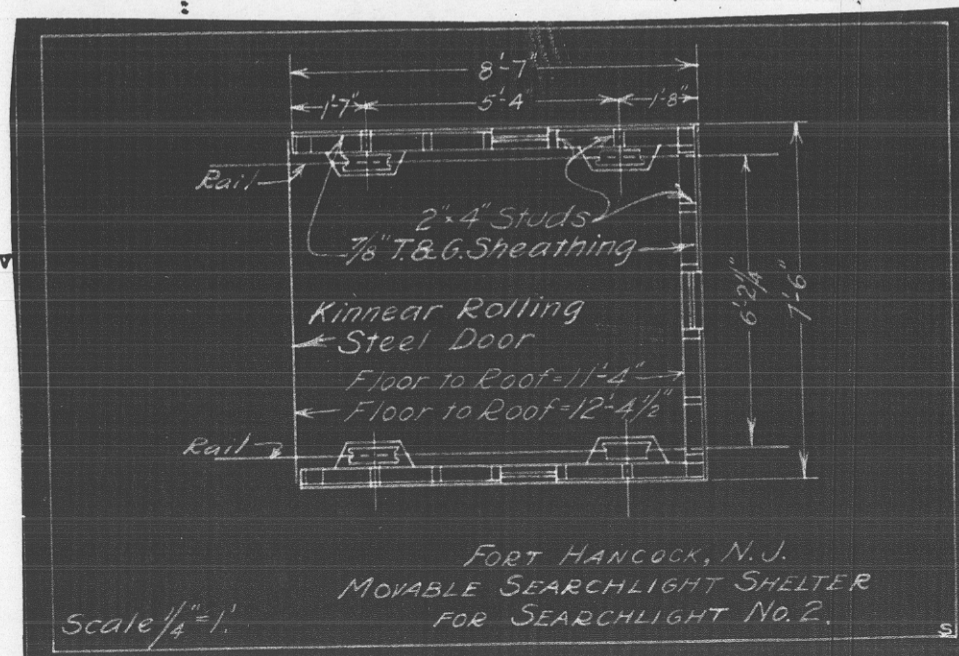 8'-7"
1'-7" 5'-4" 1'-8"
Rail
2"x4" Studs
7/8" T.&G. Sheathing
6'-2 1/4"
7'-6"
Kinnear Rolling
Steel Door
Floor to Roof=11'-4"
Floor to Roof=12'-4 1/2"
Rail
FORT HANCOCK, N.J.
MOVABLE SEARCHLIGHT SHELTER
FOR SEARCHLIGHT NO. 2.
Scale 1/4"=1'.
S